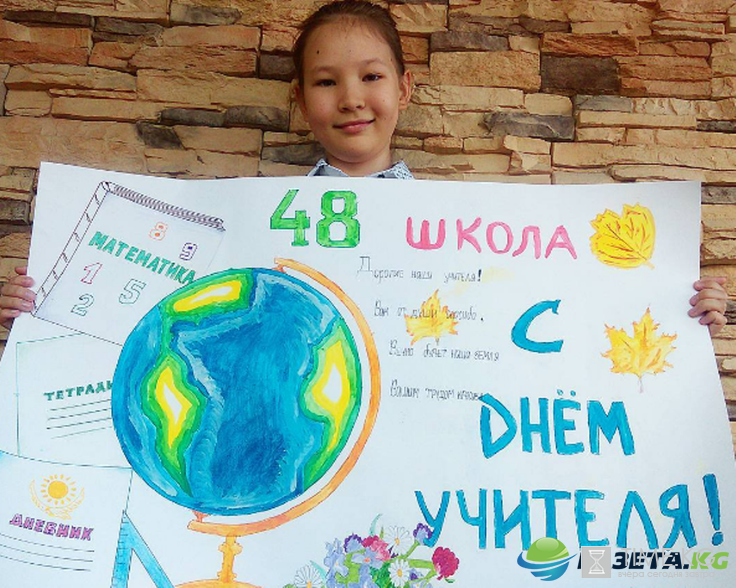 48 ШКОЛА
МАТЕМАТИКА
8 9
1 5
2
Дорогие наши учителя!
Вам от души спасибо,
Вечно будет наша земля
Вашим трудом
С
ДНЁМ
УЧИТЕЛЯ!
ТЕТРАДЬ
ДНЕВНИК
ЗЕТА.KG